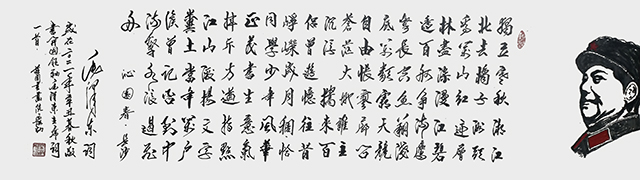 独立寒秋湘江
北去橘子洲头
看万山红遍层
林尽染漫江碧
透百舸争流鹰
击长空鱼翔浅
底万类霜天竞
自由怅寥廓问
苍茫大地谁主
沉浮携来百
侣曾游忆往昔
峥嵘岁月稠恰
同学少年风华
正茂书生意气
挥斥方遒指点
江山激扬文字
粪土当年万户
侯曾记否到中
流击水浪遏飞
舟
沁园春 长沙
毛泽东词
岁在二〇二一年辛丑春
一首